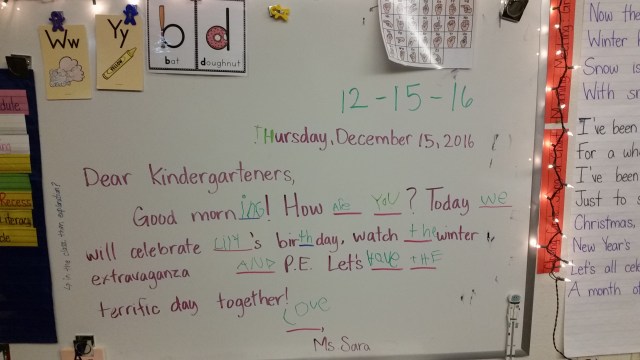 Ww
Yy
YELLOW
b
bat
d
doughnut
12-15-16
Thursday, December 15, 2016
Dear Kindergarteners,
Good morning! How are you? Today we
will celebrate Lily's birthday, watch the winter
extravaganza AND P.E. Let's have THE
terrific day together!
Love,
Ms Sara
dule
Recess
Literacy
Now the
Winter f
Snow is
With sn
I've been
For a wh
I've been
Just to s
Christmas,
New Year's
Let's all cel
A month of